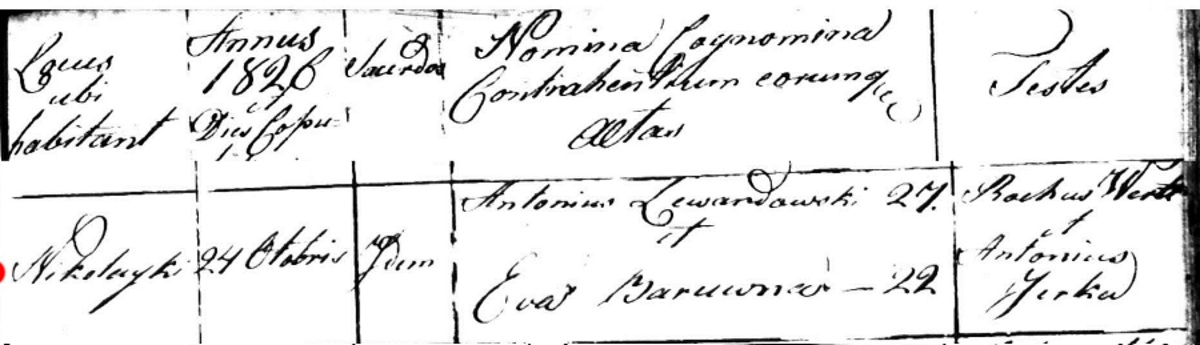 Locus
ubi
habitant
Annus
1826
et
Dies Copu-
Sacerdos
Nomina Cognomina
Contrahentium eorumque
Ætas
Testes
Nikolayki
24 Otobris
Idem
Antonius Lewandowski 27.
et
Eva Baruwna — 22
Rochus
et
Antonius
Jerka